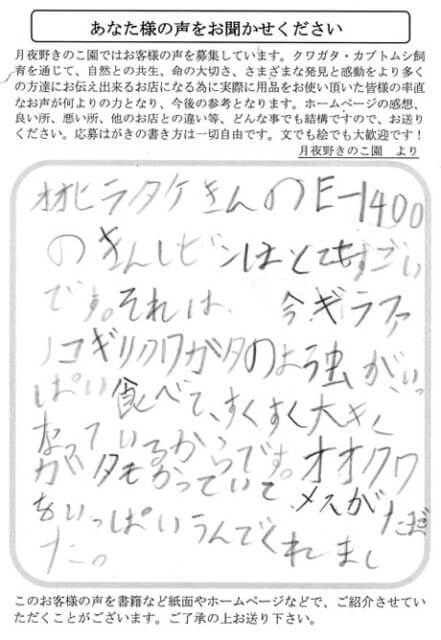 あなた様の声をお聞かせください
月夜野きのこ園ではお客様の声を募集しています。クワガタ・カブトムシ飼
育を通じて、自然との共生、命の大切さ、さまざまな発見と感動をより多く
の方達にお伝え出来るお店になる為に実際に用品をお使い頂いた皆様の率直
なお声が何よりの力となり、今後の参考となります。ホームページの感想、
良い所、悪い所、他のお店との違い等、どんな事でも結構ですので、お送り
ください。応募はがきの書き方は一切自由です。文でも絵でも大歓迎です！
月夜野きのこ園　より
ヒラタケきんのE-1400
のきんしビンはとてもすごい
です。それは、今、ギラファ
ノコギリクワガタのよう虫が、いっ
ぱい食べて、すくすく大きく
なっているからです。オオクワ
ガタもかっていてメスがたまご
をいっぱいうんでくれまし
た。
このお客様の声を書籍など紙面やホームページなどで、ご紹介させてい
ただくことがございます。ご了承の上お送り下さい。